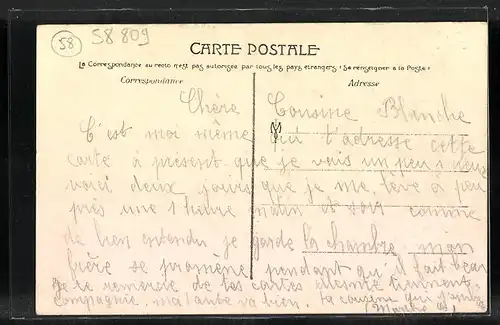 58
58 809
CARTE POSTALE
La Correspondance au recto n'est pas autorisée par tous les pays étrangers (Se renseigner à la Poste)
Correspondance
Adresse
Chère Cousine Blanche
C'est moi même qui t'adresse cette
carte à présent que je vais un peu mieux
voici deux jours que je me lève à peu
près une 1 heure matin et soir comme
de bien entendu je garde la chambre, mon
frère se promène pendant qu'il fait beau
Je te remercie de tes cartes
Compagnie, va bien. ta cousine qui